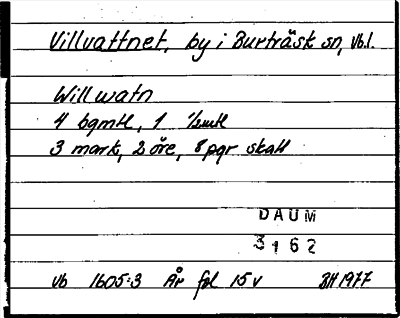 Villvattnet, by i Burträsk sn, Vb.l.
Willwatn
4 bgmtl, 1 ½mtl
3 mark, 2 öre, 8 pgr skatt
DAUM
3162
Vb 1605:3 År fol 15 v BH 1977